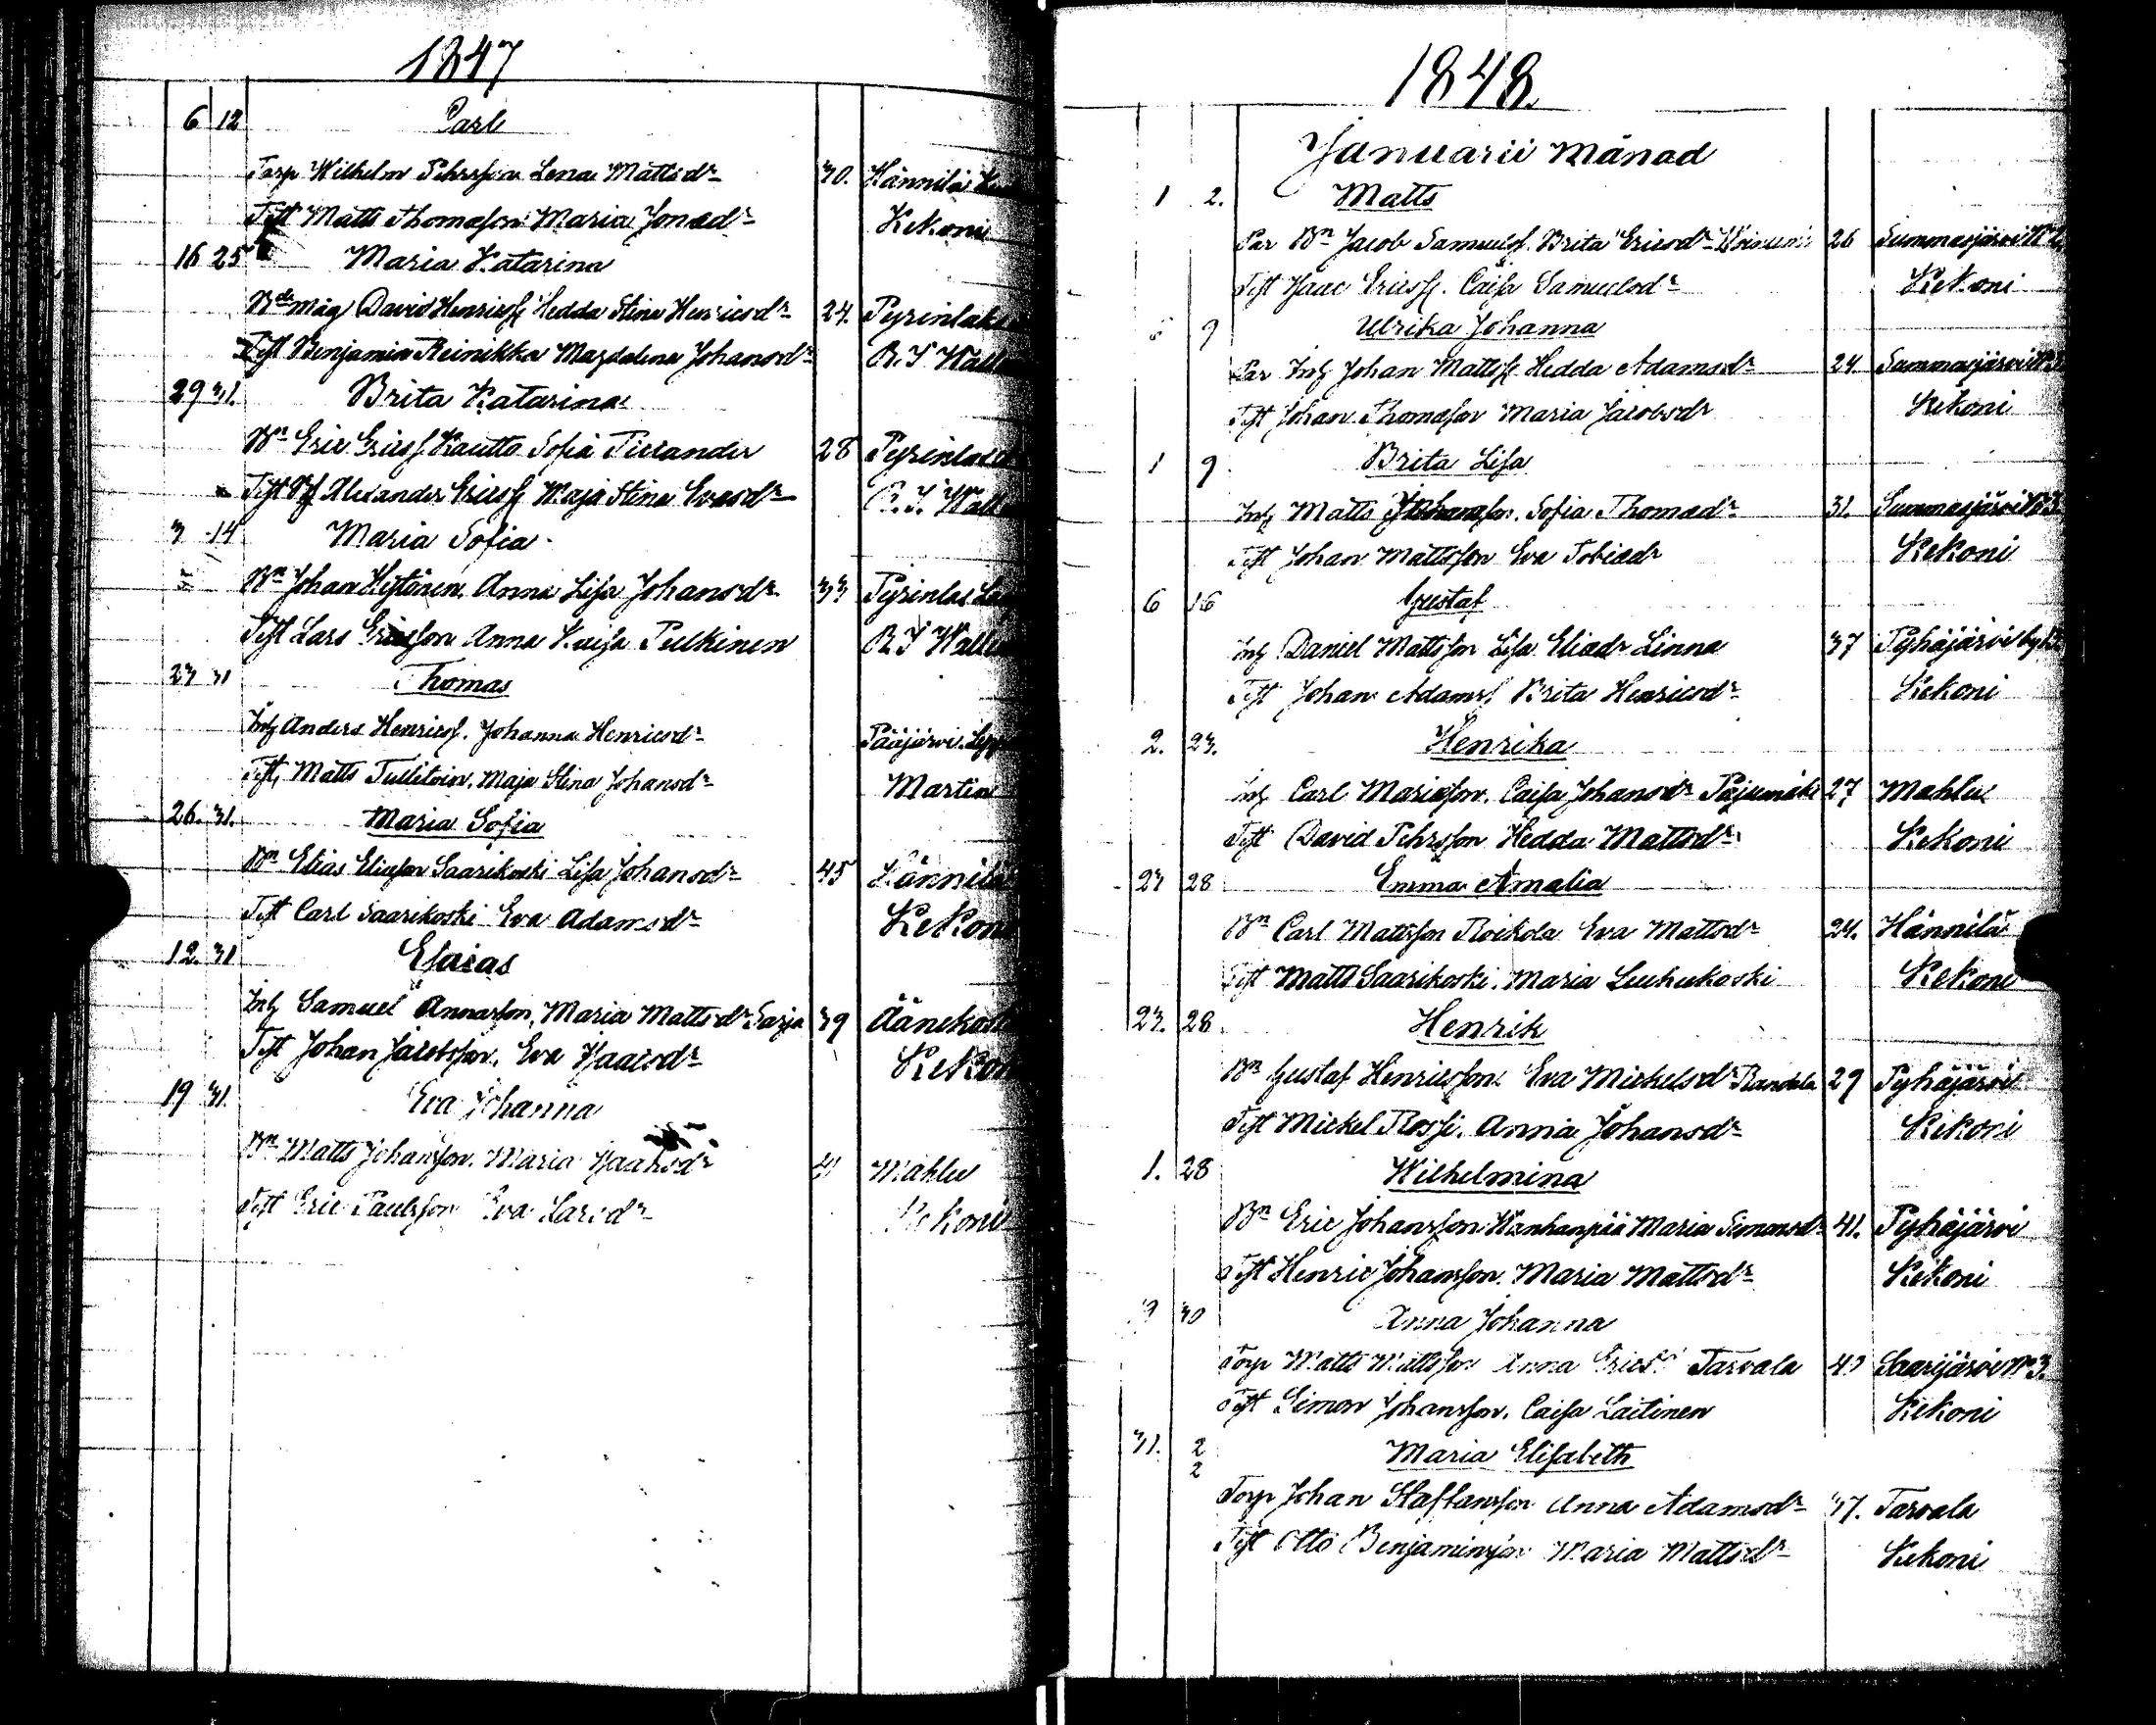 1847
6 12 Carl
Torp Wilhelm Pehrsson Lena Mattsdr 30. Hännilä
Test Matts Thomasson Maria Jonaedr Kekoni
16 25 Maria Katarina
Bde måg David Henricss Hedda Stina Henricsdr 24. Pyrinlaks
Test Benjamin Reinikka Magdalena Johansdr B. I. Wall
29 31. Brita Katarina
Bn Eric Ericss. Kautto Sofia 28 Pyrinlaks
Test Alexander Ericss Maja Stina Ersdr Wall
3 14 Maria Sofia
Bn Johan Hytönen Anna Lisa Johansdr 33 Pyrinlax
Test Lars Ericsson Anna Kaisa Pulkinen B I Wall
23 31 Thomas
Inh Anders Henricss. Johanna Henricsdr Pääjärvi Lepp
Test Matts Tullitoin. Maja Stina Johansdr Martin
26. 31. Maria Sofia
Bn Elias Eliasson Saarikoski Lisa Johansdr 45 Hännilä
Test Carl Saarikoski Eva Adamsdr Kekoni
12. 31 Esaias
Inh Samuel Annasson, Maria Mattsdr Sarja 39 Äänekoski
Test Johan Jacobsson, Eva Isaacsdr Kekoni
19 31. Eva Johanna
Bn Matts Johansson. Maria Isaacsdr 41 Mahlu
Test Eric Paulsson Eva Larsdr Kekoni
1848.
Januarii Månad
1 2. Matts
Par Bn Jacob Samuelss. Brita Ericsdr 26 Summasjärvi No
Test Isaac Ericss. Caisa Samuelsdr Kekoni
9 Ulrika Johanna
Par Inh Johan Mattss Hedda Adamsdr 24 Summasjärvi No
Test Johan Thomasson Maria Jacobsdr Kekoni
1 9. Brita Lisa
Inh Matts Johansson. Sofia Thomaedr 31. Summasjärvi No 3
Test Johan Mattsson Eva Tobiaedr Kekoni
6 16 Gustaf
Inh Daniel Mattsson Lisa Eliaedr Linna 37 Pyhäjärvi by
Test Johan Adamss Brita Henricsdr Kekoni
2. 23. Henrika
Inh Carl Mariasson. Caisa Johansdr Pajumäki 27 Mahlu
Test David Pehrsson Hedda Mattsdr Kekoni
23 28 Emma Amalia
Bn Carl Mattsson Roikola Eva Mattsdr 24. Hännilä
Test Matts Saarikoski. Maria Luukukoski Kekoni
23. 28 Henrik
Bn Gustaf Henricsson. Eva Mickelsdr Randala 29 Pyhäjärvi
Test Mickel Rossi. Anna Johansdr Kekoni
1. 28 Wilhelmina
Bn Eric Johansson Wanhanpää Maria Simonsdr 41. Pyhäjärvi
Test Henric Johansson. Maria Mattsdr Kekoni
9 30 Anna Johanna
Torp Matts Mattsson Anna Ericsdr Tarvala 40 Saarijärvi No 3.
Test Simon Johansson. Caisa Laitinen Kekoni
31. 2/2 Maria Elisabeth
Torp Johan Staffansson Anna Adamsdr 37. Tarvala
Test Otto Benjaminsson Maria Mattsdr Kekoni